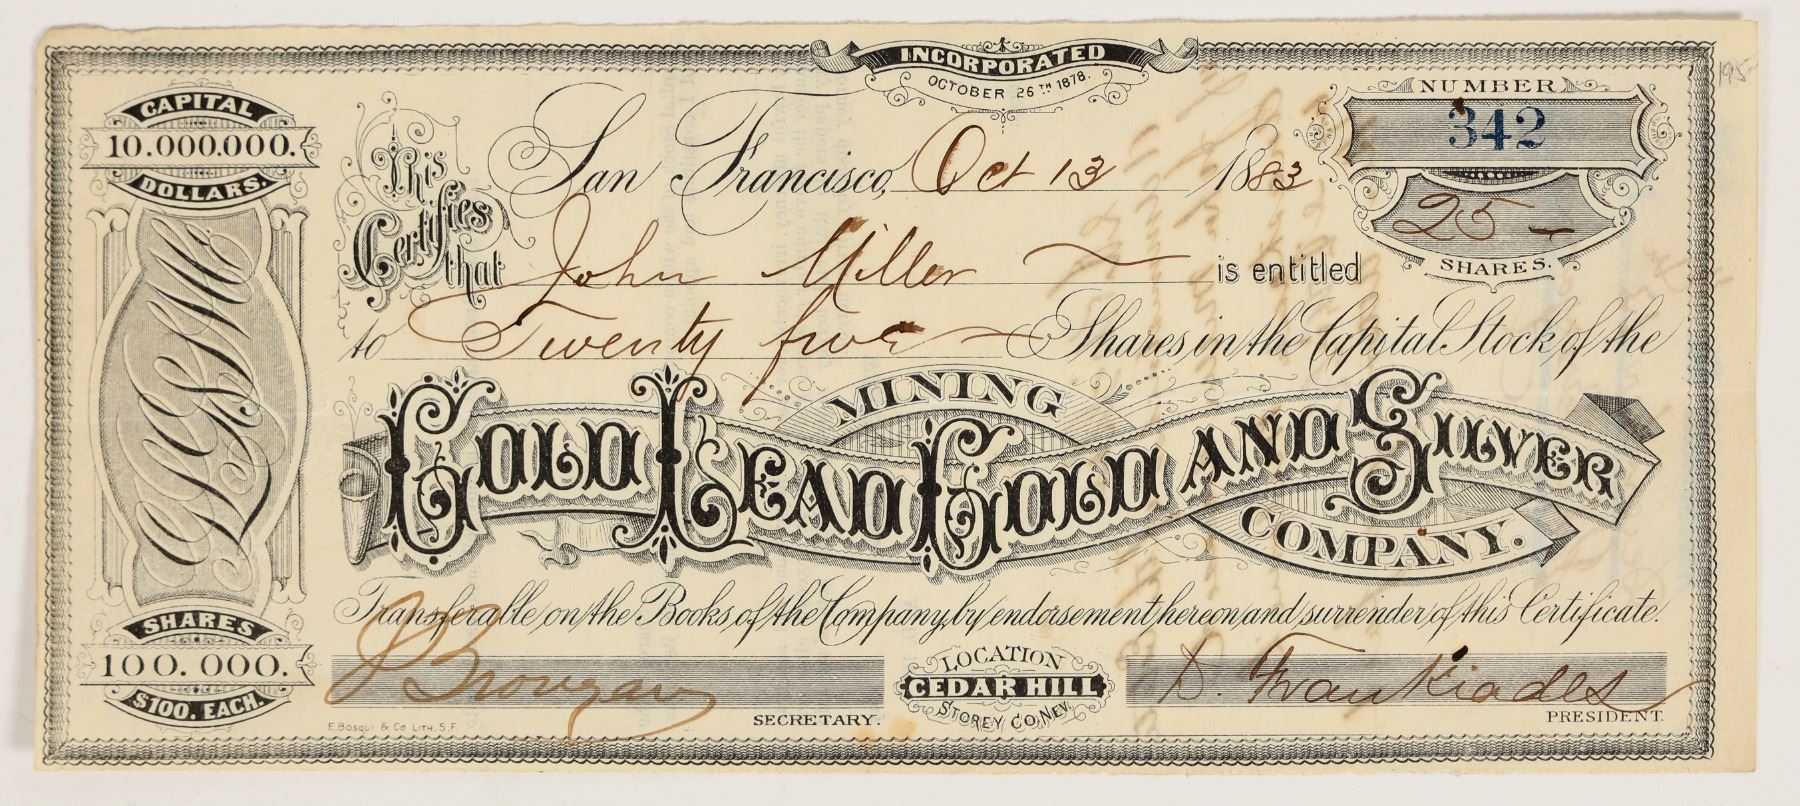 INCORPORATED
OCTOBER 26TH 1878.
CAPITAL
10.000.000.
DOLLARS.
GLG&SMC
SHARES
100.000.
$100. EACH.
NUMBER
342
25 –
SHARES.
San Francisco, Oct 13 1883
This Certifies that John Miller is entitled
to Twenty five Shares in the Capital Stock of the
MINING
GOLD LEAD GOLD AND SILVER
COMPANY.
Transferable on the Books of the Company by endorsement hereon and surrender of this Certificate.
SECRETARY.
LOCATION
CEDAR HILL
STOREY CO. NEV.
D. Frankiades
PRESIDENT.
E. BOSQUI & CO LITH. S.F.
195-